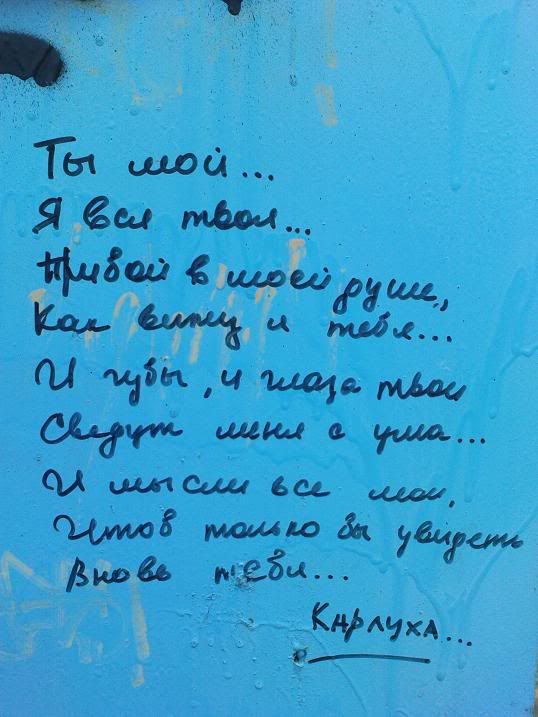 Ты мой...
Я вся твоя...
Прибой в моей душе,
Как вижу я тебя...
И губы, и глаза твои
Сведут меня с ума...
И мысли все мои,
Чтоб только бы увидеть
Вновь тебя...
Карлуха...